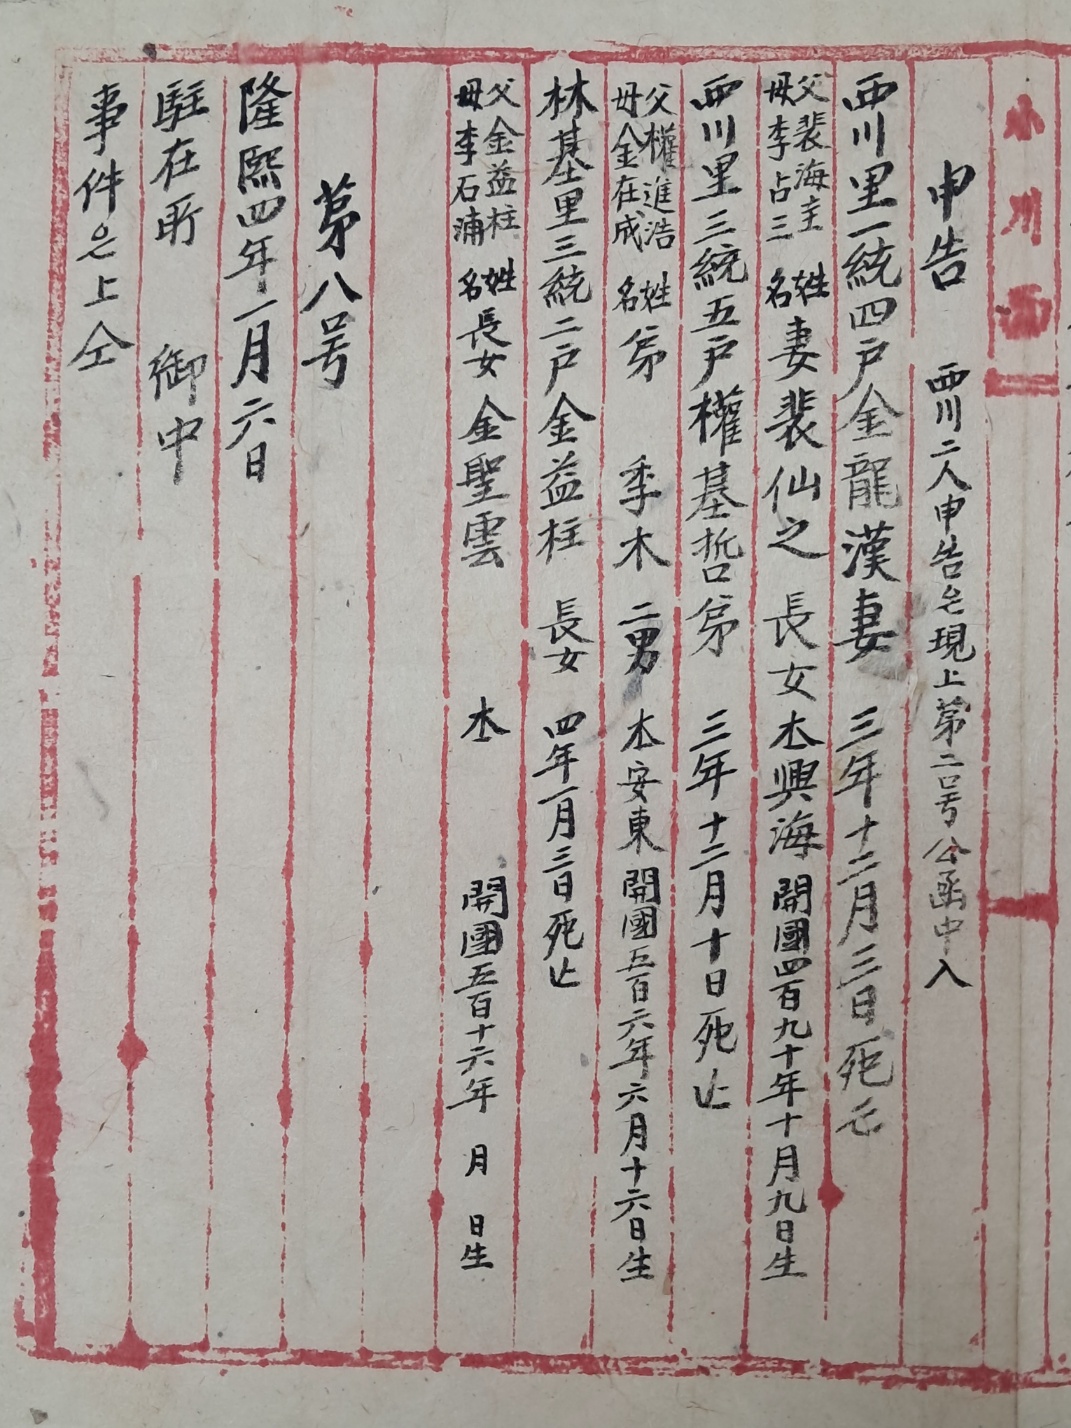 小川面
申告 西川二人申告乞現上第二号公函中入
西川里一統四戸金龍漢妻 三年十二月三日死亡
父裴海主
母李占三
姓
名 妻裴仙之 長女 本興海 開國四百九十年十月九日生
西川里三統五戸權基哲弟 三年十二月十日死亡
父權進浩
母金在成
姓
名 弟 季木 二男 本安東 開國五百六年六月十六日生
林基里三統二戸金益柱 長女 四年一月三日死亡
父金益柱
母李石浦
姓
名 長女 金聖雲 本 開國五百十六年 月 日生
苐八号
隆熙四年一月六日
駐在所 御中
事件乞上仝